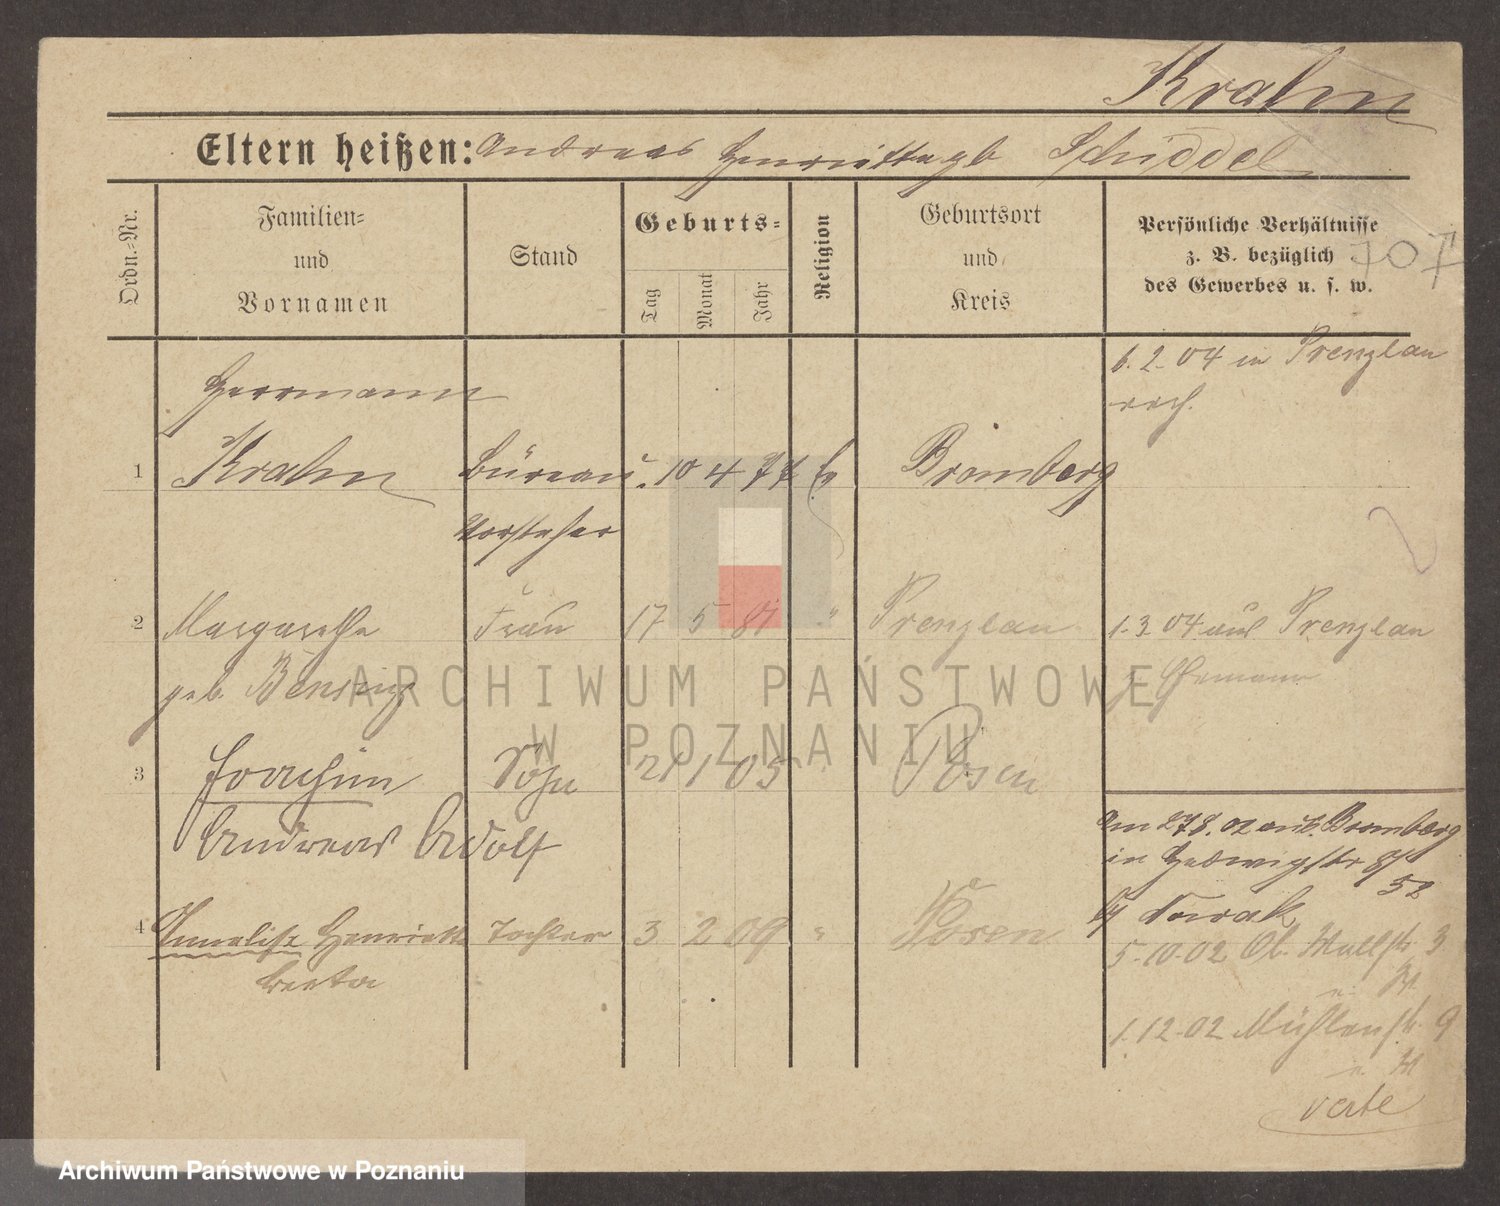 Krahn
Eltern heißen: Andreas Henriette gb Schiddel
Ordn.-Nr.
Familien-
und
Vornamen
Stand
Geburts-
Tag
Monat
Jahr
Religion
Geburtsort
und
Kreis
Persönliche Verhältnisse
z. B. bezüglich
des Gewerbes u. s. w.
707
Herrmann
6.2.04 in Prenzlau
1 Krahn Büreau 10 4 77 Ev Bromberg
Vorsteher
2 Margarethe Frau 17 5 81 " Prenzlau 1.3.04 aus Prenzlau
geb. Bensing
z. Ehemann
3 Joachim Sohn 21 1 05 Posen
Andreas Adolf
Am 27.8.02 aus Bromberg
in Hedwigstr
52
by Nowak
4 Annelise Henriette Tochter 3 2 09 " Posen
5.10.02 Ob. Wallstr 3
1.12.02 Mühlenstr 9
verte
ARCHIWUM PAŃSTWOWE
W POZNANIU
Archiwum Państwowe w Poznaniu